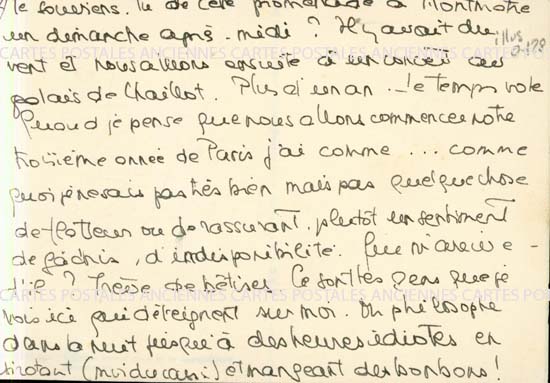 te souviens-tu de cette promenade à Montmartre
un dimanche après-midi ? Il y avait du
vent et nous allions ensuite à un concert au
palais de Chaillot. Plus d'un an. Le temps vole
Quand je pense que nous allons commencer notre
troisième année de Paris j'ai comme... comme
quoi je ne sais pas très bien mais pas quelque chose
de flatteur ou de rassurant, plutôt un sentiment
de gâchis, d'indisponibilité. Que m'arrive-
t'il ? Trève de bêtises. Ce sont les gens que je
vois ici qui déteignent sur moi. On philosophe
dans la nuit jusqu'à des heures idiotes en
sirotant (moi du cassis) et mangeant des bonbons !
illus
0-128
CARTES POSTALES ANCIENNES CARTES POSTALES ANCIENNES CARTES
CARTES POSTALES ANCIENNES CARTES POSTALES ANCIENNES CARTES